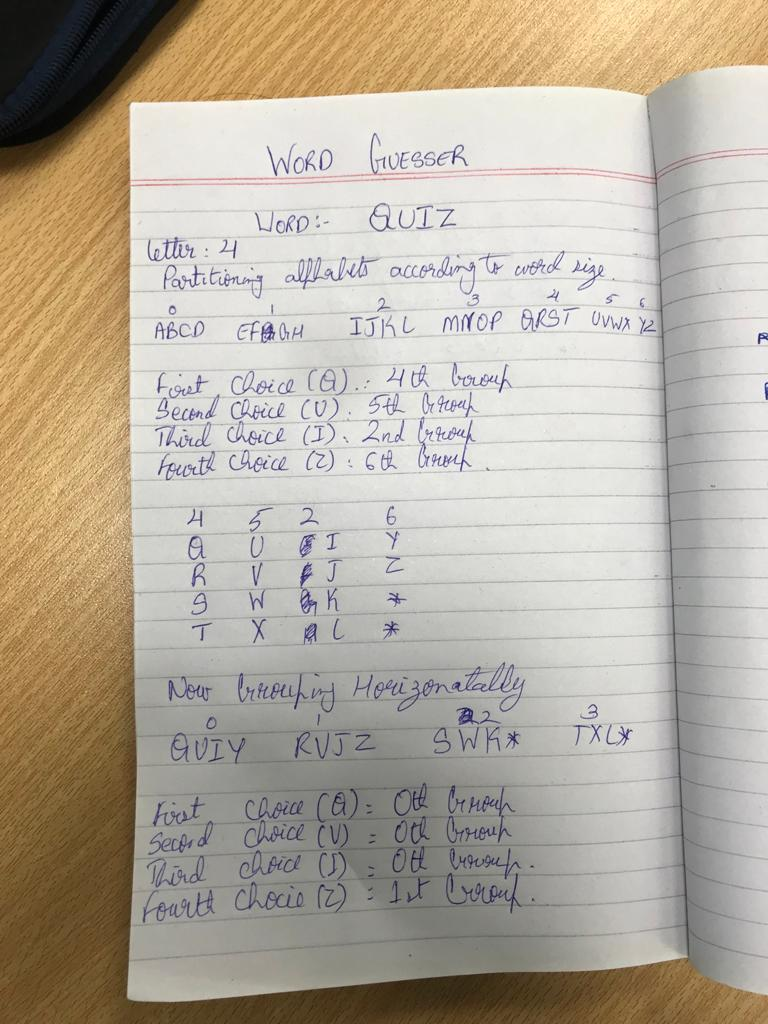 WORD GUESSER
WORD:- QUIZ
letter: 4
Partitioning alphabets according to word size.
0 1 2 3 4 5 6
ABCD EFGH IJKL MNOP QRST UVWX YZ
First Choice (Q).: 4th Group
Second Choice (U). 5th Group
Third Choice (I). 2nd Group
Fourth Choice (Z): 6th Group.
4 5 2 6
Q U I Y
R V J Z
S W K *
T X L *
Now Grouping Horizonatally
0 1 2 3
QUIY RVJZ SWK* TXL*
First Choice (Q) = 0th Group
Second Choice (U) = 0th Group
Third Choice (I) = 0th Group.
Fourth Chocie (Z) = 1st Group.